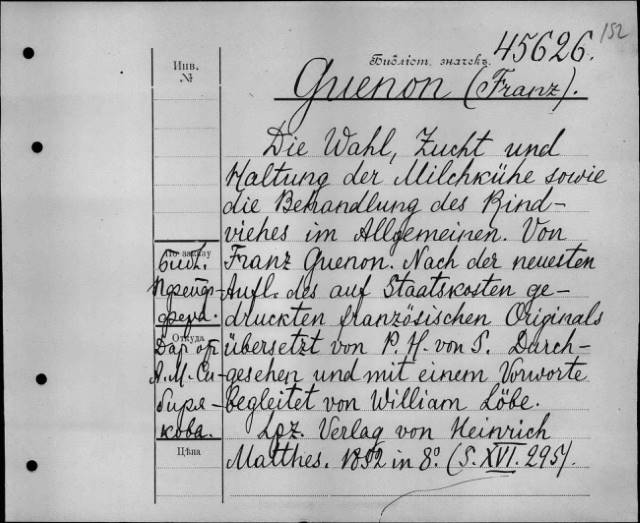 152
45626.
Библіот. значекъ
Инв.
№
Guenon (Franz).
Die Wahl, Zucht und
Haltung der Milchkühe sowie
die Behandlung des Rind-
viehes im Allgemeinen. Von
По заказу
Библ.
Franz Guenon. Nach der neuesten
Aufl. des auf Staatskosten ge-
druckten französischen Originals
Откуда
Дар от
übersetzt von P. H. von S. Durch-
А. М. Си-
gesehen und mit einem Vorworte
биря-
begleitet von William Löbe.
кова.
Lpz. Verlag von Heinrich
Цѣна
Matthes. 1852 in 8° (S. XVI. 295).